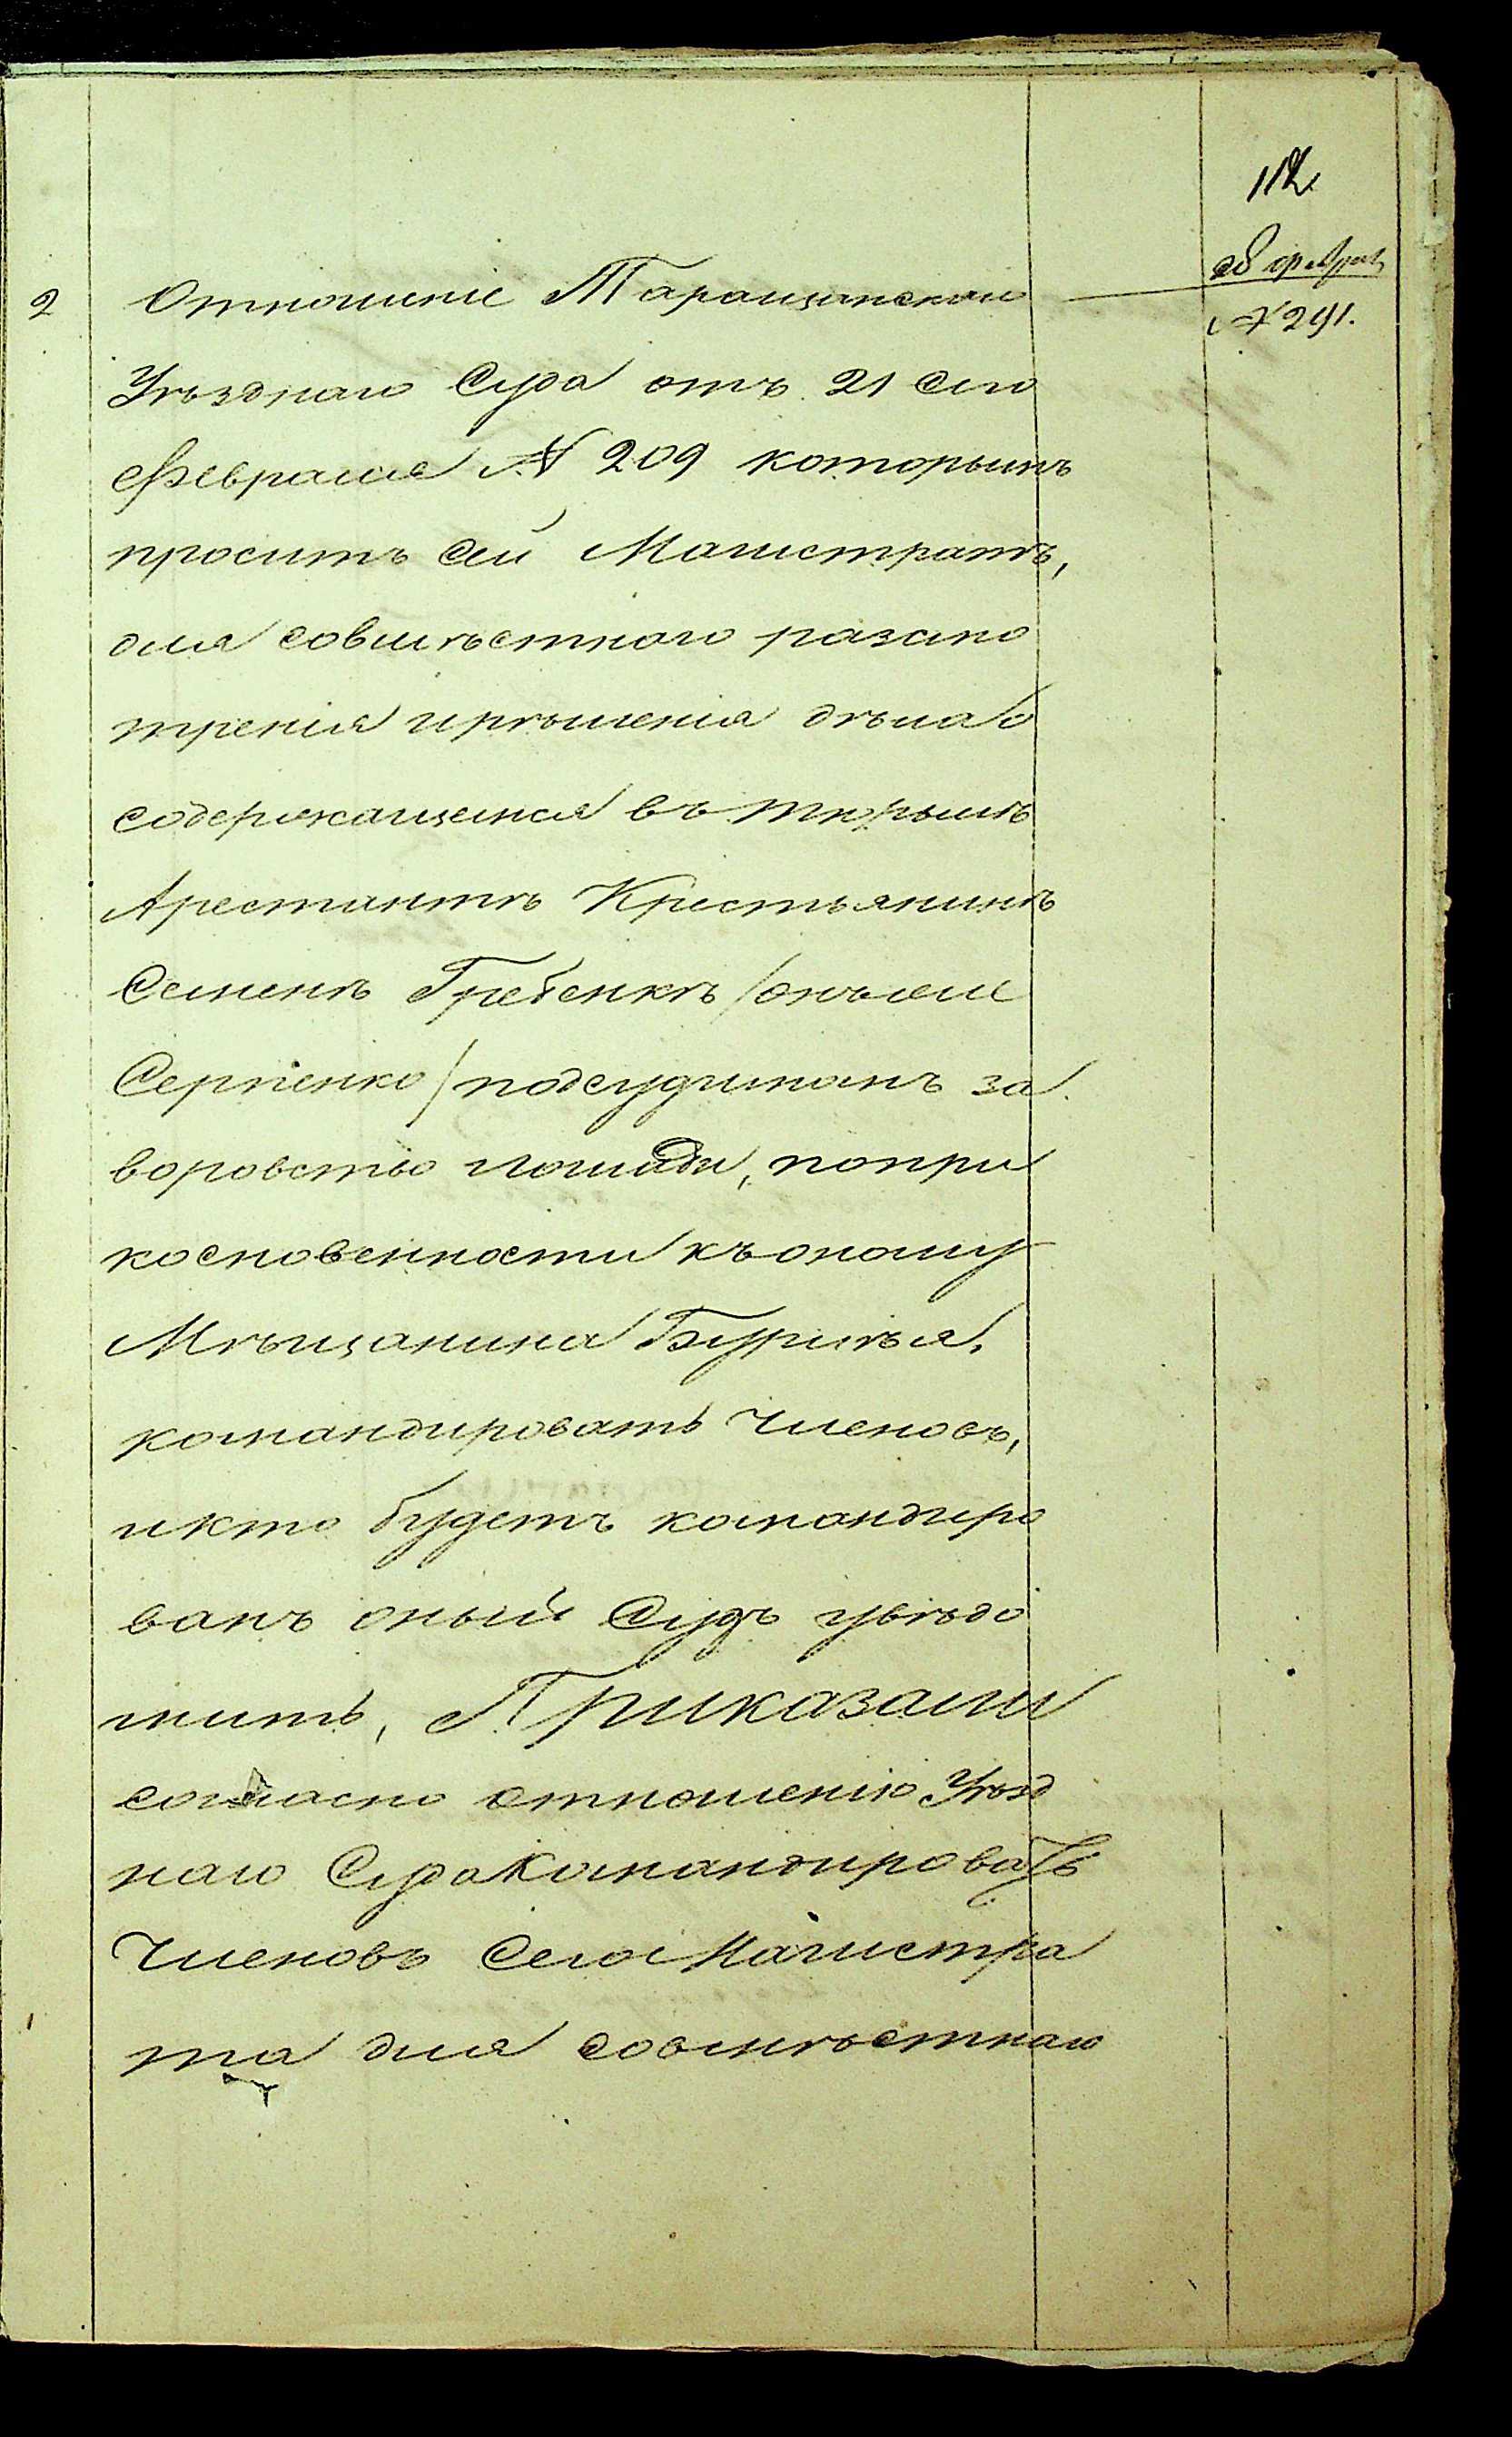 112
28 феврал
№ 291.
2
Отношеніе Таращанскаго
Уѣзднаго Суда отъ 21 сего
Февраля № 209 которымъ
проситъ сей Магистратъ,
для совмѣстнаго разсмо
трения и рѣшенія дѣла о
содержащемся въ тюрьмѣ
Арестантѣ Крестьянинѣ
Семенѣ Гребенкѣ /онъ же
Сергіенко/ подсудимомъ за
воровство лошади, по при
косновенности къ оному
Мѣщанина
командировать Членовъ,
и кто будетъ командиро
ванъ оный Судъ увѣдо
мить, Приказали
согласно отношенію Уѣзд
наго Суда Командировать
Членовъ Сего Магистра
та для совмѣстнаго